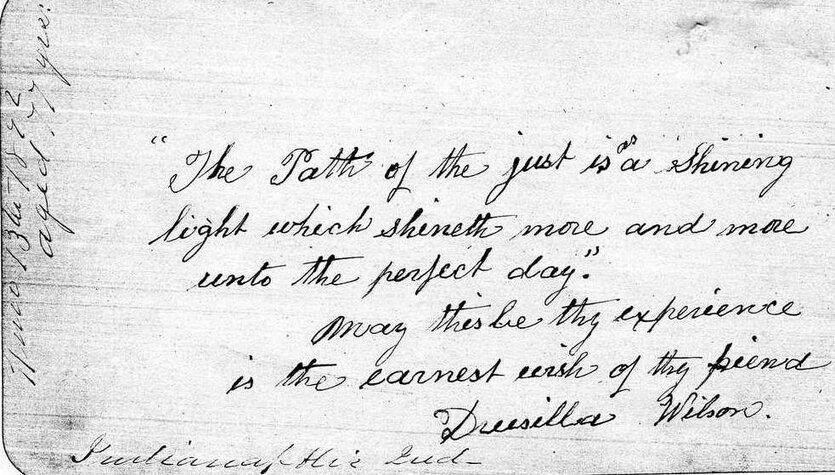 "The Path of the just is as a shining
light which shineth more and more
unto the perfect day."
May this be thy experience
is the earnest wish of thy friend
Drusilla Wilson.
Indianapolis Ind
13th 1892
aged 77 yrs.